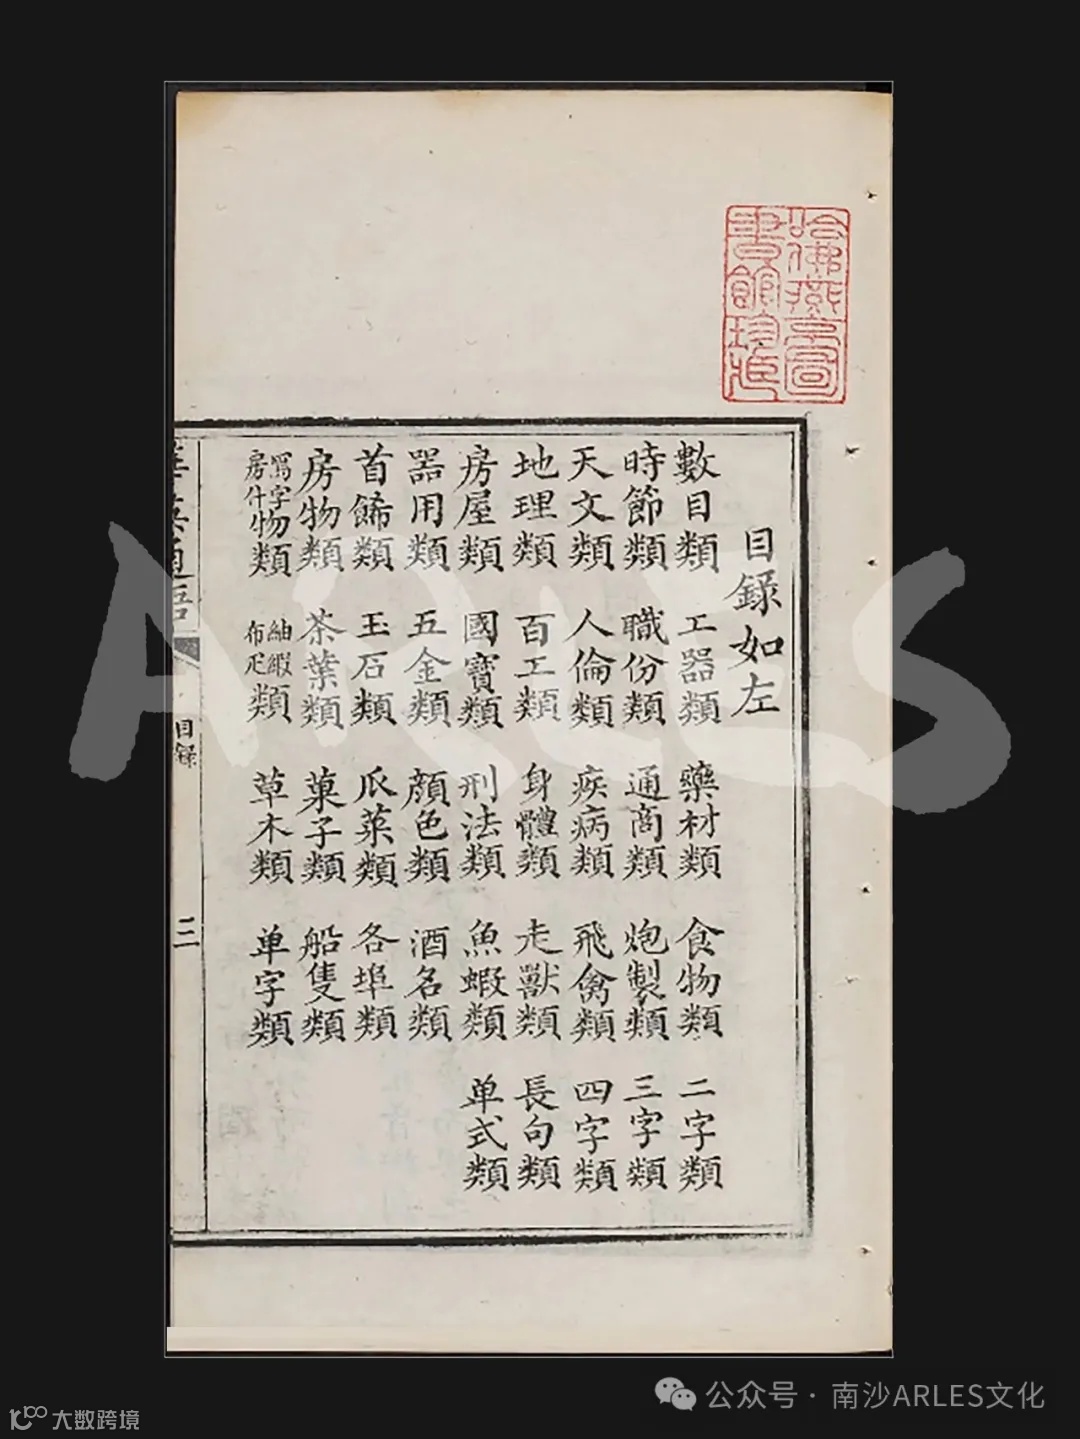 哈佛燕京圖
書館珍藏
目録如左
數目類 工器類 藥材類 食物類 二字類
時節類 職份類 通商類 炮製類 三字類
天文類 人倫類 疾病類 飛禽類 四字類
地理類 百工類 身體類 走獸類 長句類
房屋類 國寶類 刑法類 魚蝦類 单式類
噐用類 五金類 顔色類 酒名類
首餙類 玉石類 瓜菜類 各埠類
房物類 茶葉類 菓子類 船隻類
寫字房什物類 紬緞布疋類 草木類 单字類
華英通語 目録 三
ARLES
公众号 · 南沙ARLES文化
大数跨境